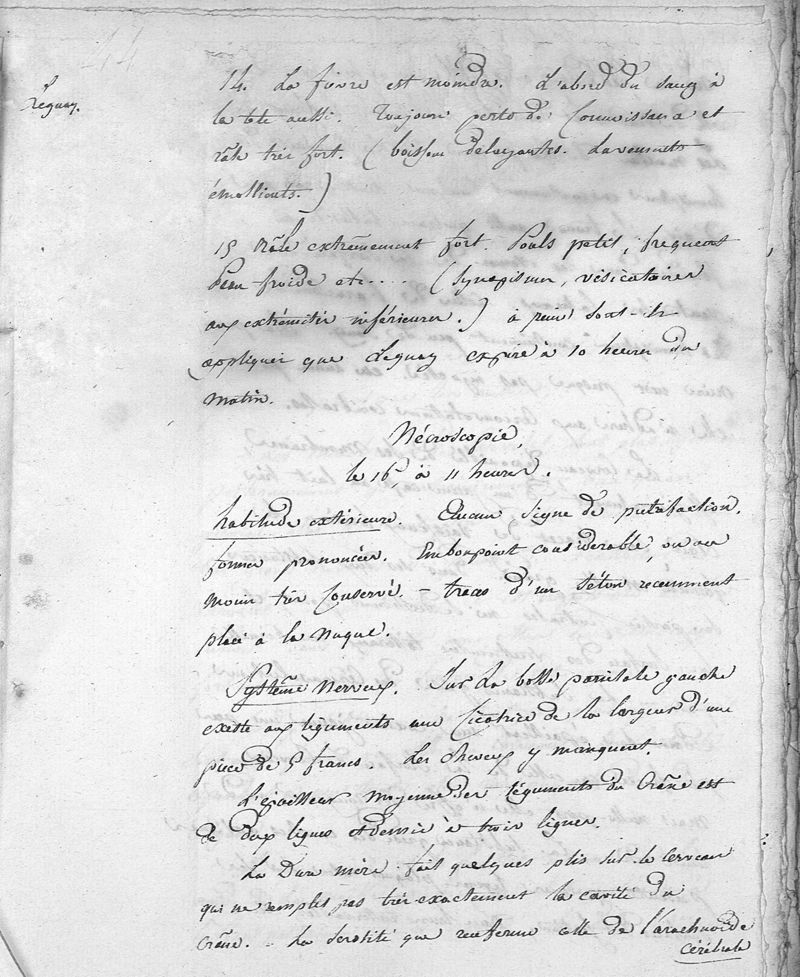 Leguay.
14. La fièvre est moindre. L'abord du sang à
la tête aussi. Toujours perte de Connoissance et
râle très fort. (boissons délayantes. Lavements
émollients.)
15 Râle extrêmement fort. Pouls petit, fréquent
Peau froide etc.... (Synapismes, vésicatoires
aux extrémités inférieures.) à peine sont-ils
appliqués que Leguay expire à 10 heures du
matin.
Nécroscopie,
le 16, à 11 heures.
habitude extérieure. Aucun signe de putréfaction.
formes prononcées. Embonpoint considérable, ou au
moins très Conservé. - traces d'un Séton récemment
placé à la Nuque.
Système Nerveux. Sur La bosse pariétale gauche
existe aux téguments une Cicatrice de la largeur d'une
pièce de 5 francs. Les cheveux y manquent.
L'épaisseur moyenne des téguments du Crâne est
de deux lignes et demie à trois lignes.
La Dure mère fait quelques plis sur le Cerveau
qui ne remplit pas très exactement la cavité du
Crâne. - La Sérosité que renferme celle de l'arachnoïde
cérébrale